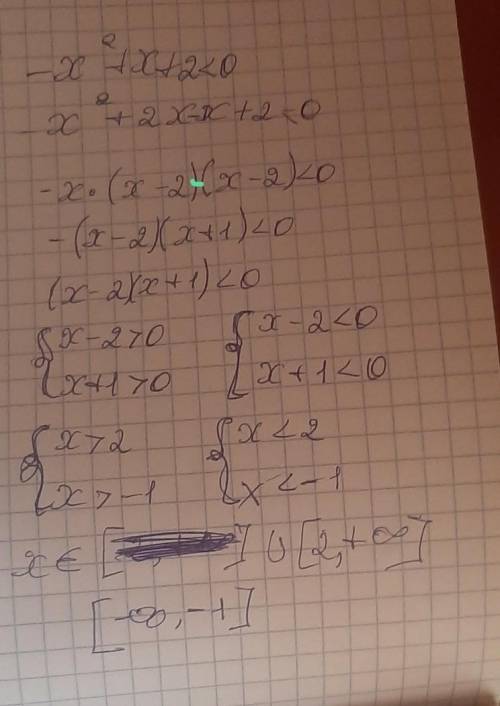 -x²+x+2<0
-x²+2x-x+2<0
-x·(x-2)-(x-2)<0
-(x-2)(x+1)<0
(x-2)(x+1)<0
{x-2>0 {x-2<0
x+1>0 x+1<0
{x>2 {x<2
x>-1 x<-1
x∈[ ]∪[2,+∞]
[-∞,-1]